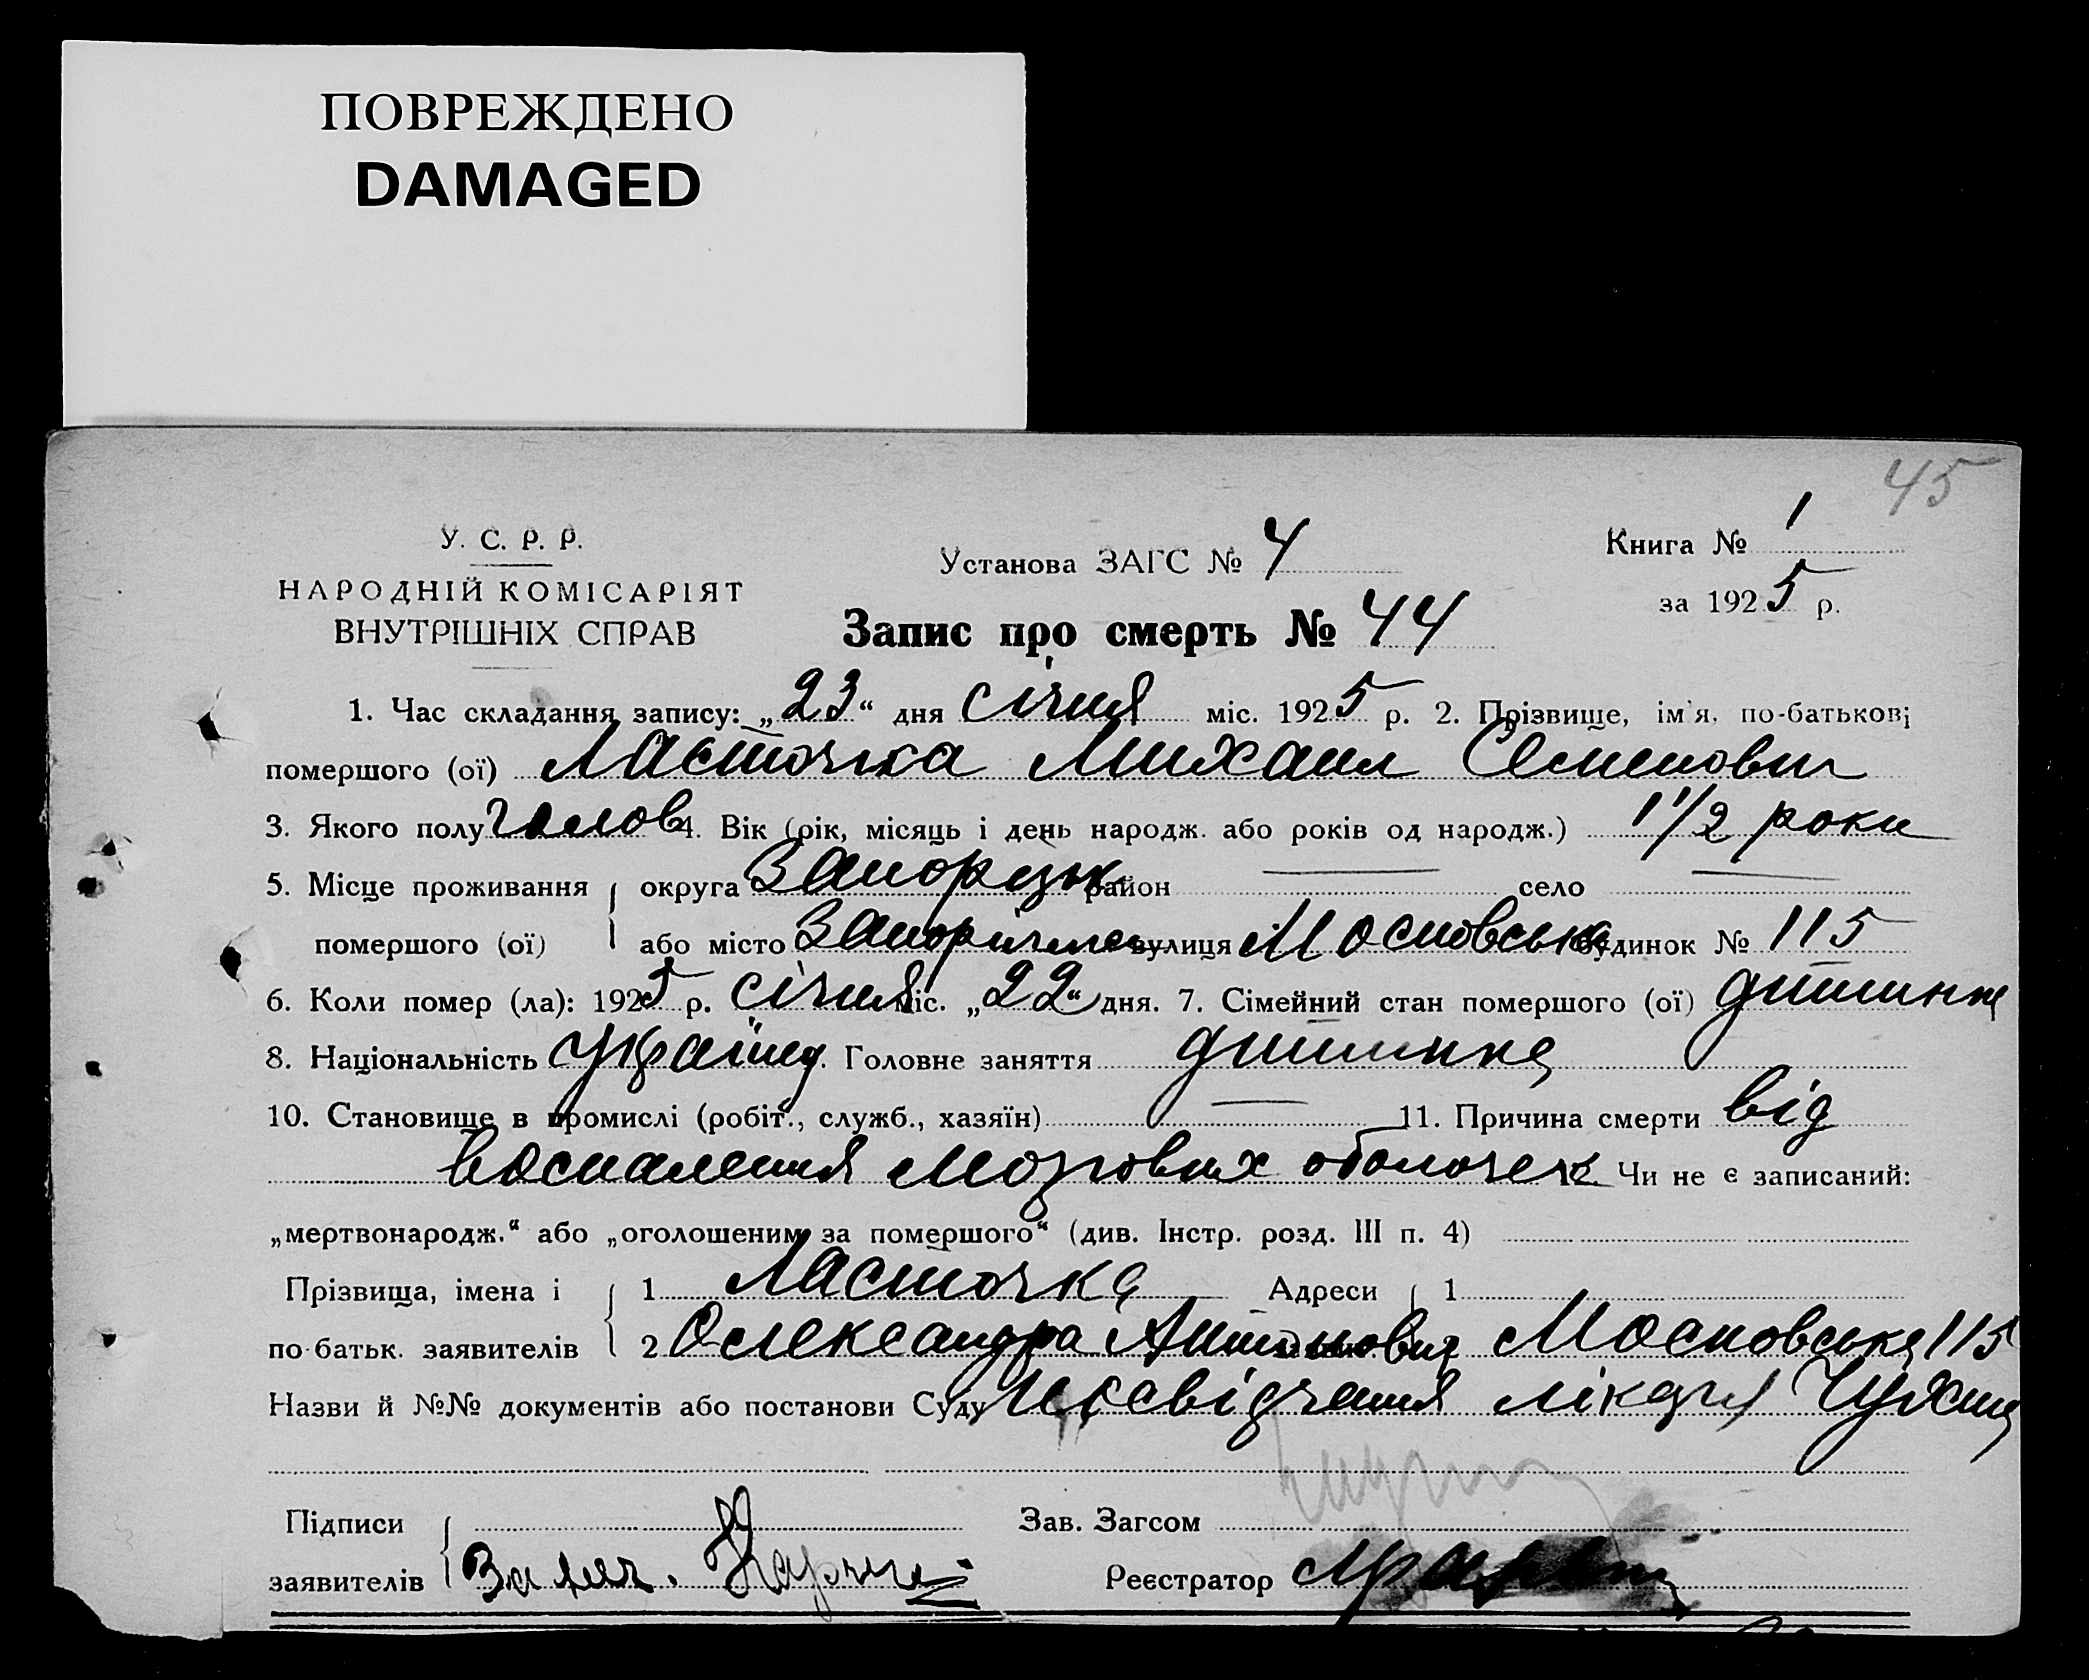 ПОВРЕЖДЕНО
DAMAGED
45
У. С. Р. Р.
НАРОДНІЙ КОМІСАРІЯТ
ВНУТРІШНІХ СПРАВ
Установа ЗАГС № 4
Книга № 1
за 1925 р.
Запис про смерть № 44
1. Час складання запису: „23“ дня січня міс. 1925 р. 2. Прізвище, ім'я, по-батькові
помершого (ої) Ласточка Михаил Семенович
3. Якого полу чолов 4. Вік (рік, місяць і день народж. або років од народж.) 1 1/2 роки
5. Місце проживання округа Запорізьк район — село —
помершого (ої) або місто Запоріжжє вулиця Московська будинок № 115
6. Коли помер (ла): 1925 р. січня міс. „22“ дня. 7. Сімейний стан помершого (ої) дитинка
8. Національність Україн 9. Головне заняття дитинка
10. Становище в промислі (робіт., служб., хазяїн) — 11. Причина смерти від
воспалення мозгових оболочек Чи не є записаний:
„мертвонародж.“ або „оголошеним за помершого“ (див. Інстр. розд. III п. 4)
Прізвища, імена і 1 Ласточка Адреси 1
по-батьк. заявителів 2 Олександра Антоновна 2 Московська 115
Назви й №№ документів або постанови Суду Посвідчення лікаря
Підписи Зав. Загсом
заявителів Реєстратор